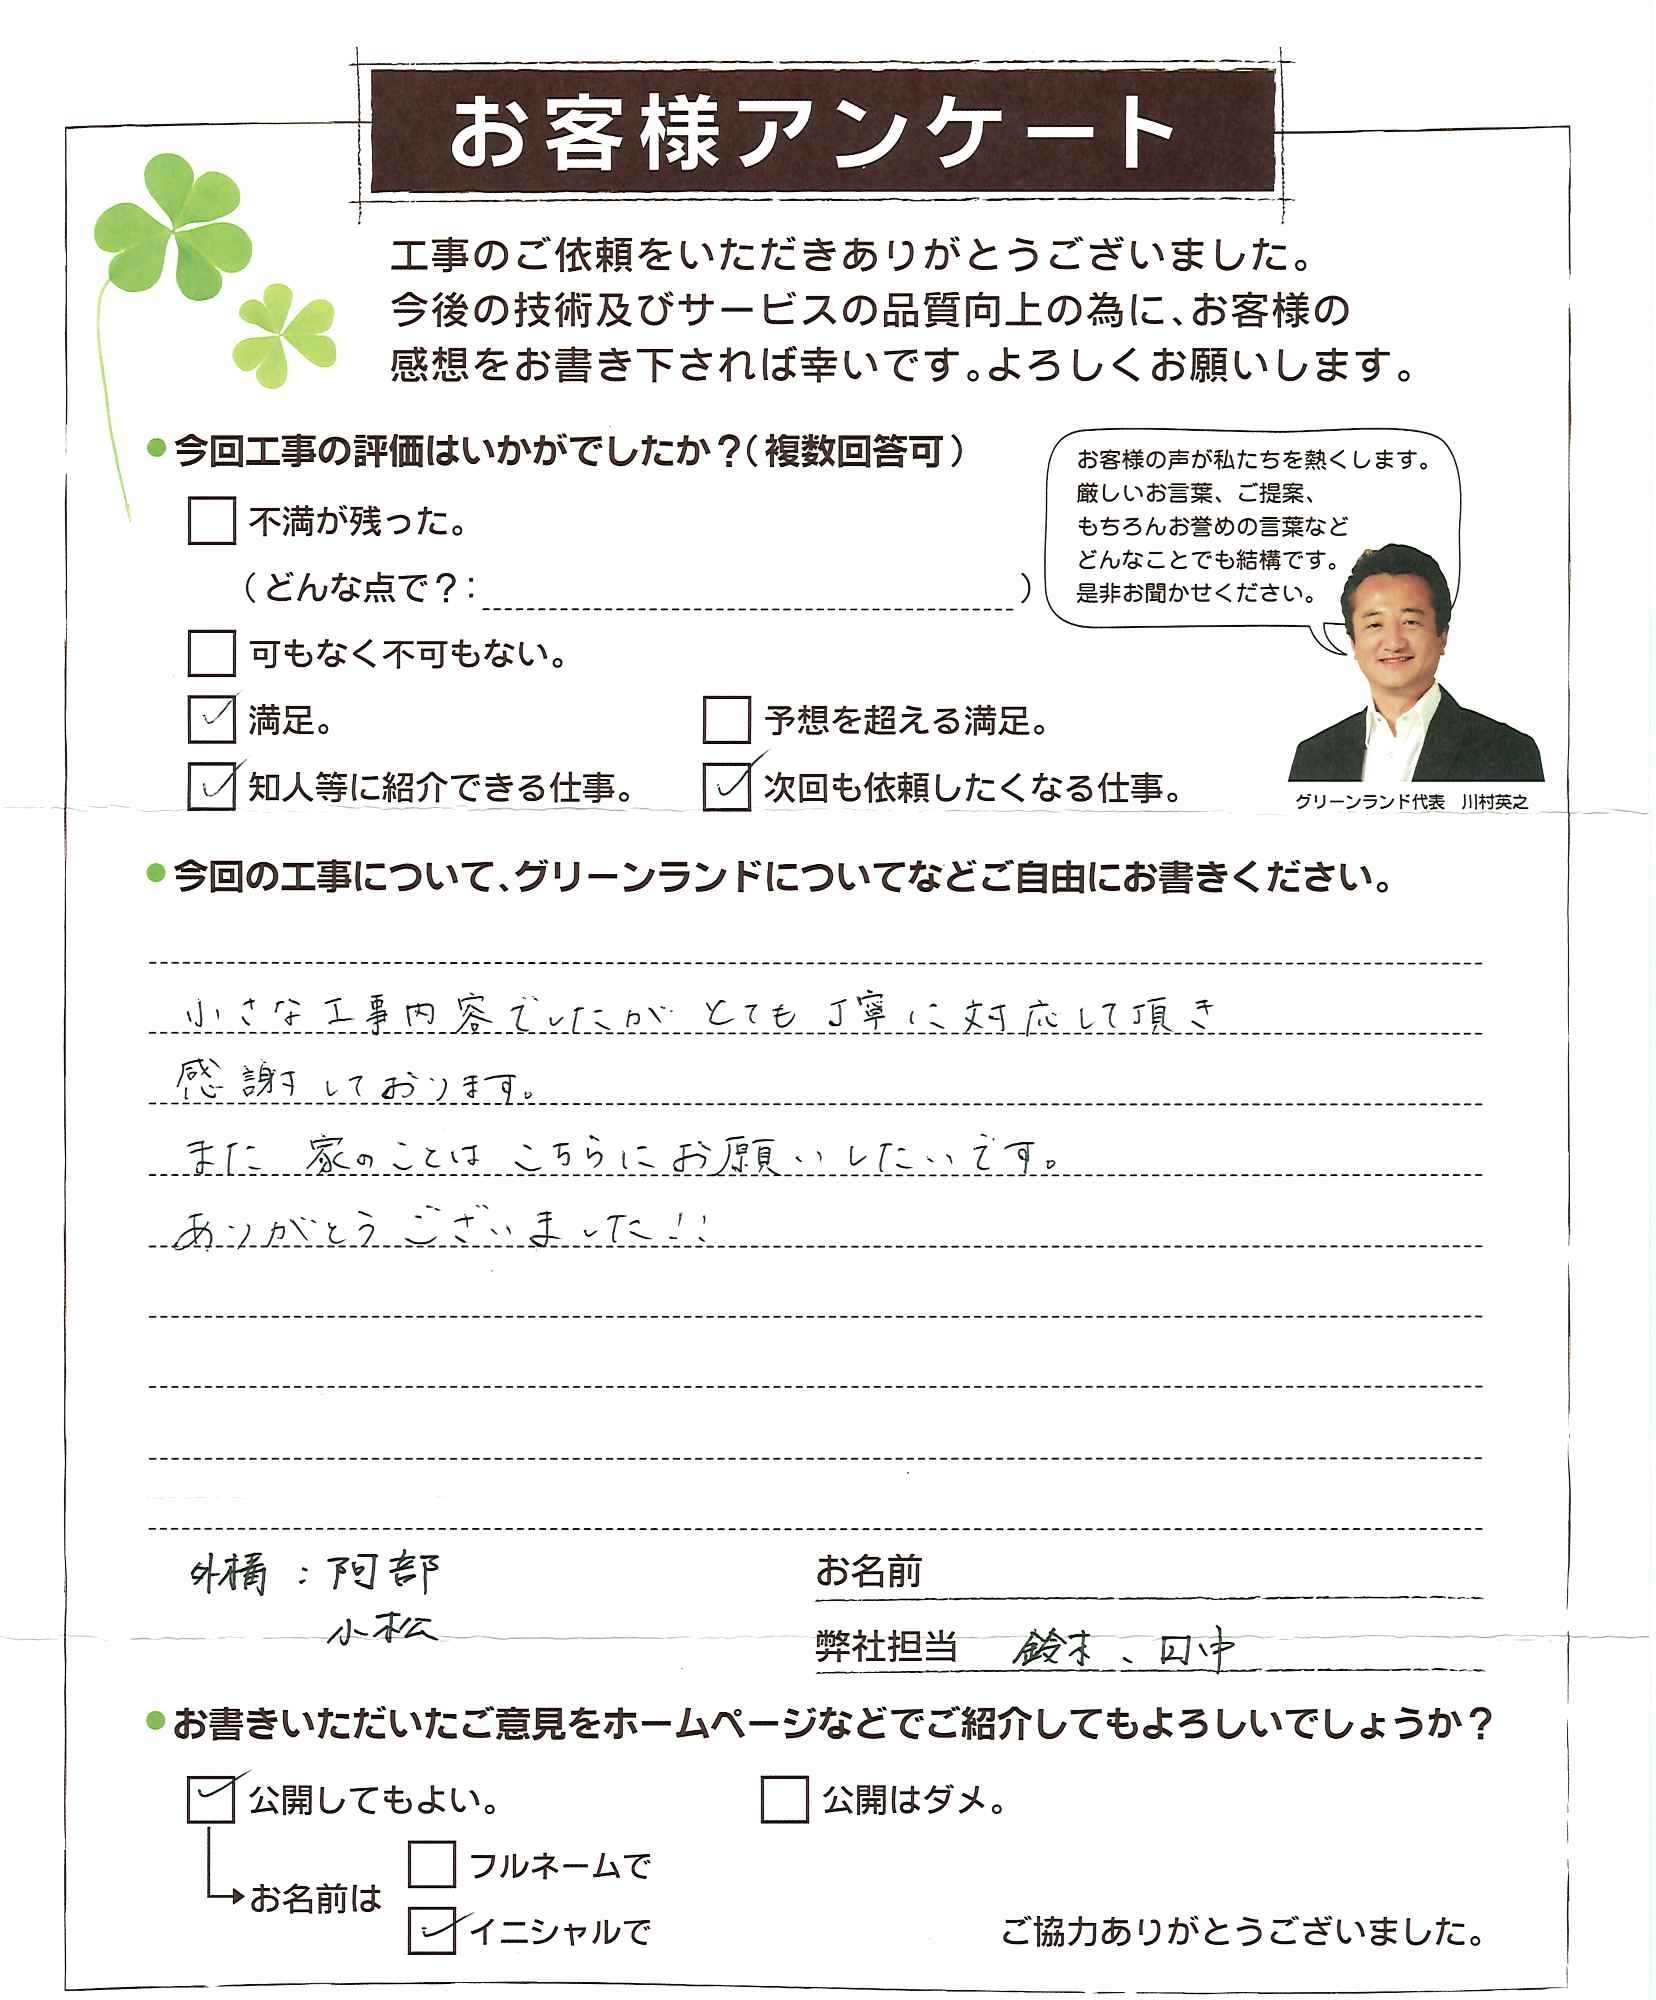 お客様アンケート
工事のご依頼をいただきありがとうございました。
今後の技術及びサービスの品質向上の為に、お客様の
感想をお書き下されば幸いです。よろしくお願いします。
●今回工事の評価はいかがでしたか？（複数回答可）
お客様の声が私たちを熱くします。
厳しいお言葉、ご提案、
もちろんお誉めの言葉など
どんなことでも結構です。
是非お聞かせください。
グリーンランド代表　川村英之
不満が残った。
（どんな点で？：　）
可もなく不可もない。
満足。　予想を超える満足。
知人等に紹介できる仕事。　次回も依頼したくなる仕事。
●今回の工事について、グリーンランドについてなどご自由にお書きください。
小さな工事内容でしたが とても丁寧に対応して頂き
感謝しております。
また 家のことは こちらにお願いしたいです。
ありがとうございました!!
外構：阿部　お名前
小松
弊社担当　鈴木、田中
●お書きいただいたご意見をホームページなどでご紹介してもよろしいでしょうか？
公開してもよい。　公開はダメ。
フルネームで
お名前は
イニシャルで　ご協力ありがとうございました。